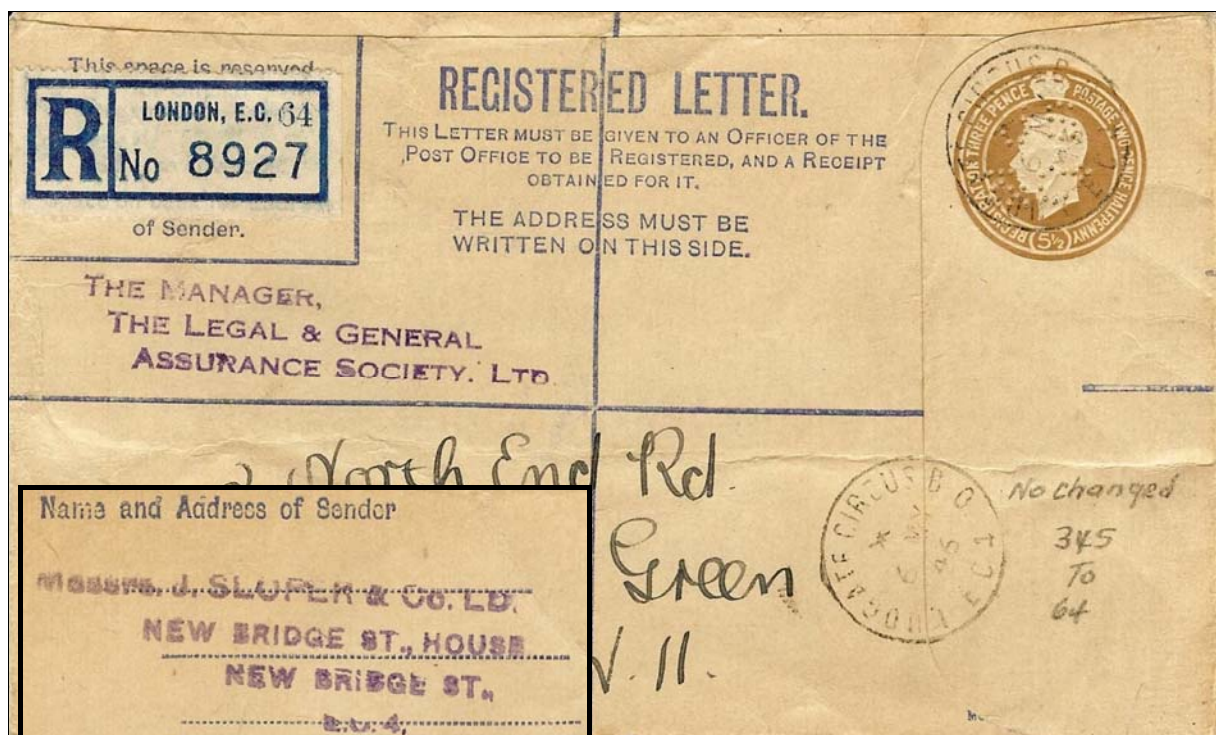 This space is reserved
R
LONDON, E.C. 64
No 8927
of Sender.
REGISTERED LETTER.
THIS LETTER MUST BE GIVEN TO AN OFFICER OF THE
POST OFFICE TO BE REGISTERED, AND A RECEIPT
OBTAINED FOR IT.
THE ADDRESS MUST BE
WRITTEN ON THIS SIDE.
REGISTRATION THREE PENCE POSTAGE TWO PENCE HALFPENNY
5½
THE MANAGER,
THE LEGAL & GENERAL
ASSURANCE SOCIETY. LTD.
North End Rd.
Green
11.
LUDGATE CIRCUS B.O.
E.C.1
6 MY
45
No changed
345
To
64
Name and Address of Sender
Messrs. J. SLOPER & Co. LD.
NEW BRIDGE ST., HOUSE
NEW BRIDGE ST.,
E.C.4,